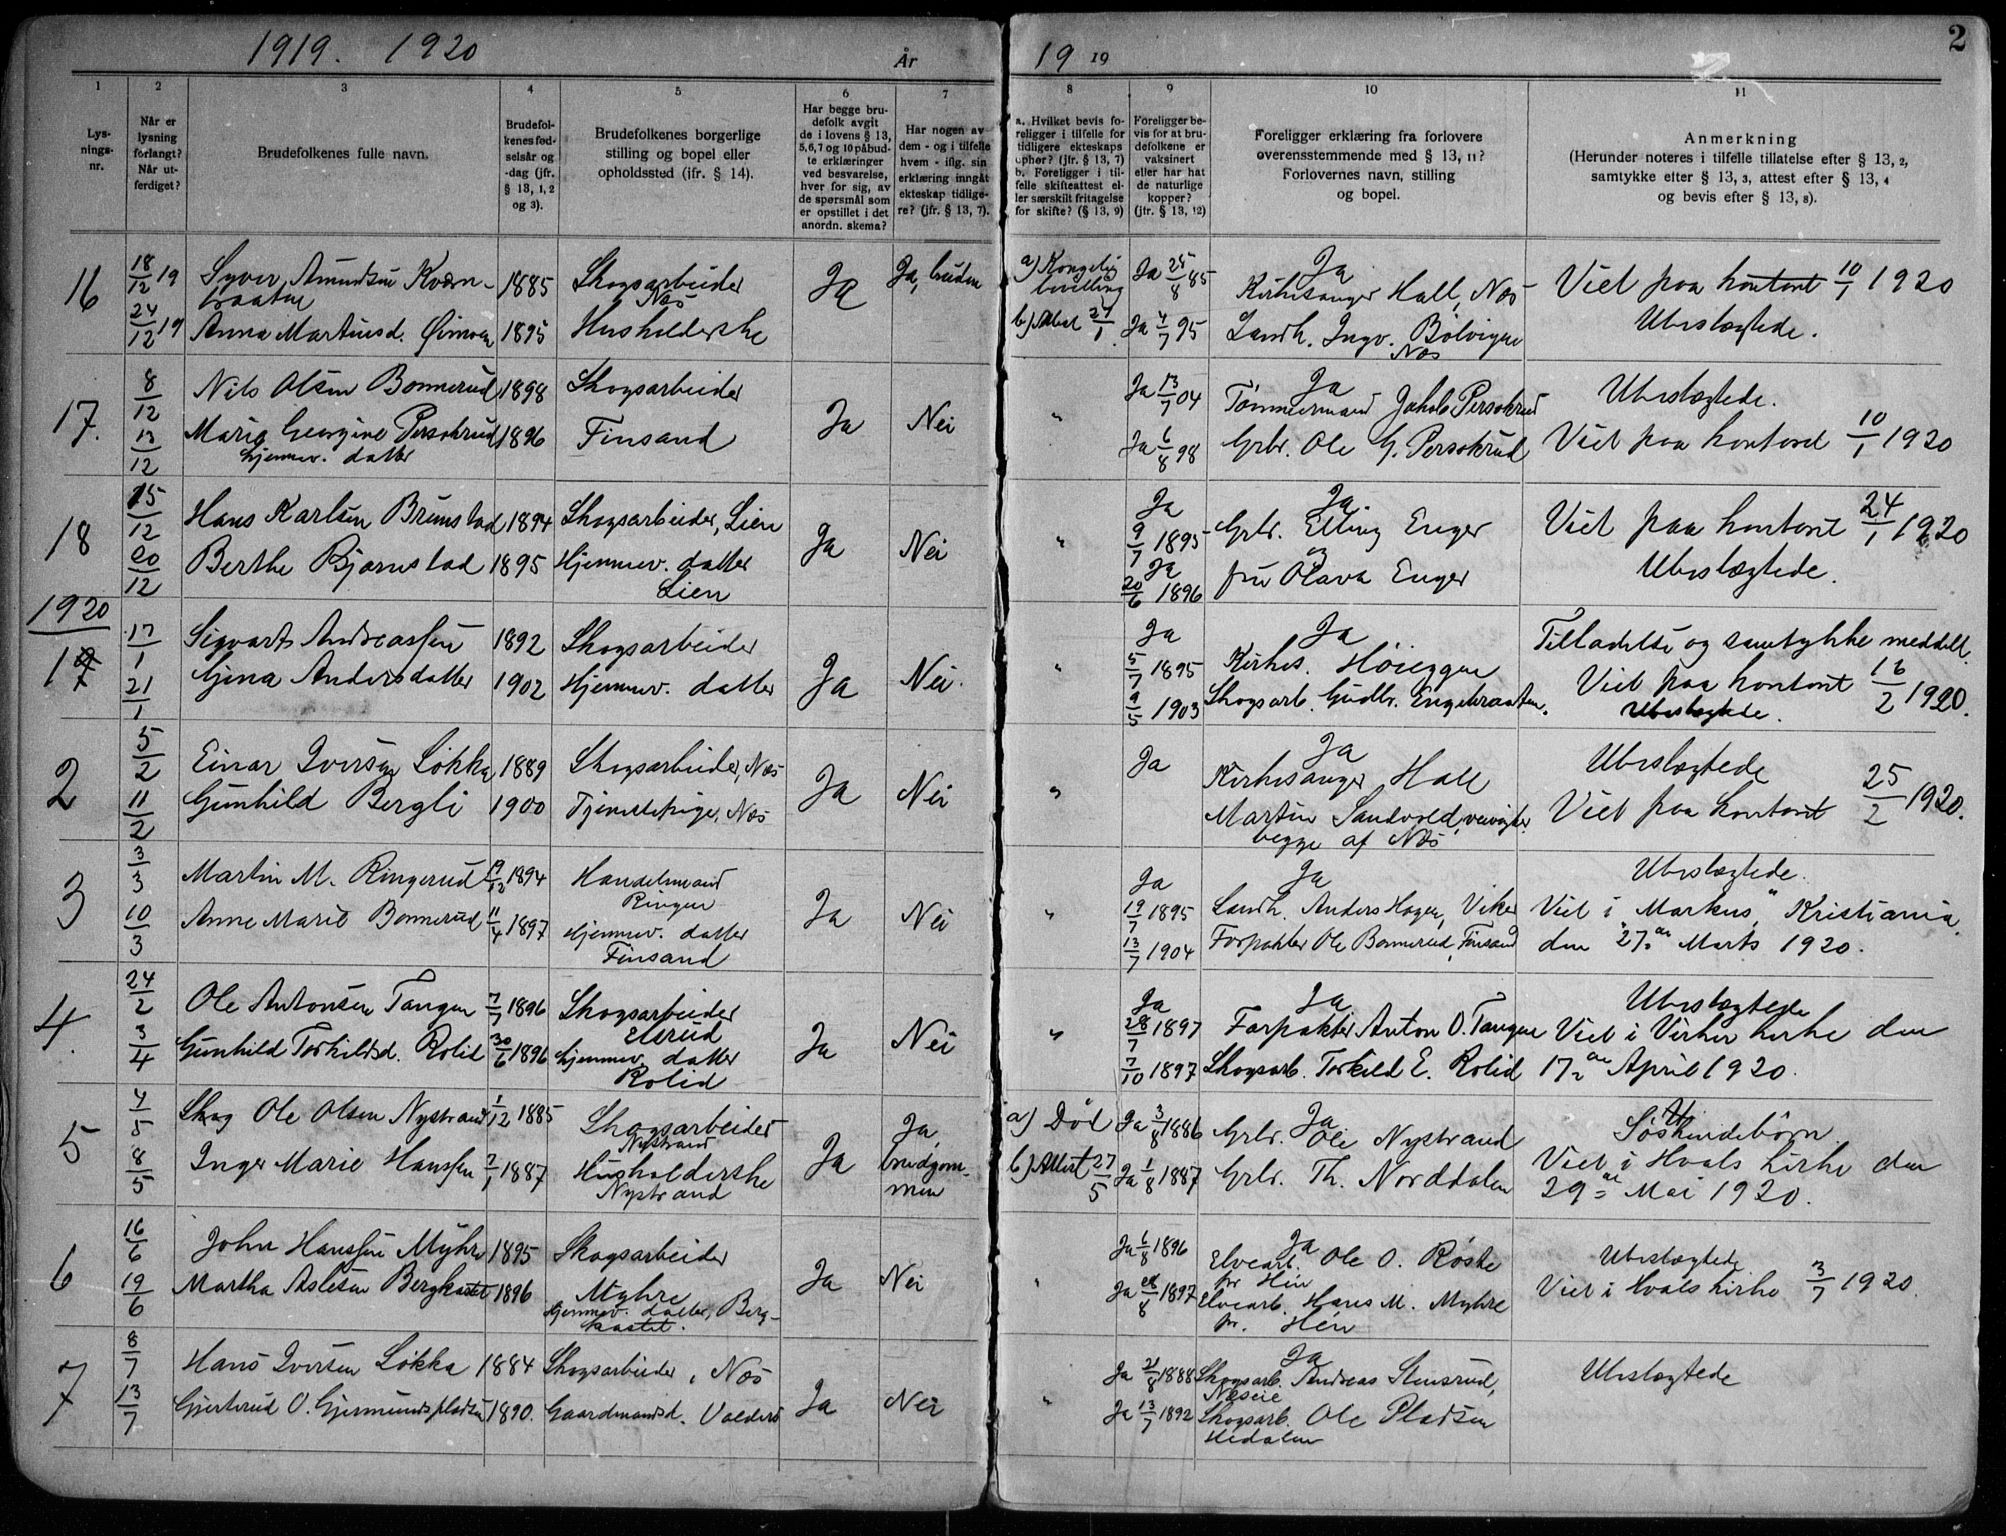 1919. 1920
År
19 19
2
1
2
3
4
5
6
7
8
9
10
11
Lys-
nings-
nr.
Når er
lysning
forlangt?
Når ut-
ferdiget?
Brudefolkenes fulle navn.
Brudefol-
kenes fød-
selsår og
-dag (jfr.
§ 13, 1, 2
og 3).
Brudefolkenes borgerlige
stilling og bopel eller
opholdssted (ifr. § 14).
Har begge bru-
defolk avgit
de i lovens § 13,
5,6,7 og 10 påbud-
te erklæringer
ved besvarelse,
hver for sig, av
de spørsmål som
er opstillet i det
anordn. skema?
Har nogen av
dem - og i tilfelle
hvem - iflg. sin
erklæring inngåt
ekteskap tidlige-
re? (jfr. § 13, 7).
a. Hvilket bevis fo-
religger i tilfelle for
tidligere ekteskaps
ophør? (jfr. § 13, 7)
b. Foreligger i til-
felle skifteattest el-
ler særskilt fritagelse
for skifte? (§ 13, 9)
Foreligger be-
vis for at bru-
defolkene er
vaksinert
eller har hat
de naturlige
kopper?
(jfr. § 13, 12)
Foreligger erklæring fra forlovere
overensstemmende med § 13, 11?
Forlovernes navn, stilling
og bopel.
Anmerkning
(Herunder noteres i tilfelle tillatelse efter § 13, 2,
samtykke efter § 13, 3, attest efter § 13, 4
og bevis efter § 13, 8).
16
18/12 19
24/12 19
Syver Amundsen Kværn-
braaten
Anna Martinsd. Øimoen
1885
1895
Skogsarbeider
Næs
Husholderske
Ja
Ja, bruden
a) Kongelig
bevilling
b) Attest 27/1
Ja 25/8 85
Ja 4/7 95
Ja
Kirkesanger Hall, Næs
Landh. Ingv. Bølvigen
Næs
Viet paa kontoret 10/1 1920
Ubeslægtede.
17.
8/12
13/12
Nils Olsen Bonnerud
Marie Georgine Persokrud
hjemmev. datter
1898
1896
Skogsarbeider
Finsand
Ja
Nei
"
Ja 13/7 04
Ja 6/8 98
Ja
Tømmermand Jakob Persokrud
Grbr. Ole G. Persokrud
Ubeslægtede.
Viet paa kontoret 10/1 1920
18
15/12
20/12
Hans Karlsen Brunstad
Berthe Bjørnstad
1894
1895
Skogsarbeider, Lien
Hjemmev. datter
Lien
Ja
Nei
"
Ja
9/7 1895
Ja
20/6 1896
Ja
Grbr. Elling Enger
og
fru Olava Enger
Viet paa kontoret 24/1 1920
Ubeslægtede.
1920
1
17/1
21/1
Sigvart Andreassen
Gina Andersdatter
1892
1902
Skogsarbeider
Hjemmev. datter
Ja
Nei.
"
Ja
5/7 1895
9/5 1903
Ja
Kirkes. Høieggen
Skogsarb. Gudbr. Engebraaten.
Tilladelse og samtykke meddelt.
Viet paa kontoret 16/2 1920.
Ubeslægtede.
2
5/2
11/2
Einar Iversen Løkka
Gunhild Bergli
1889
1900
Skogsarbeider, Næs
Tjenestepige, Næs
Ja
Nei
"
Ja
Ja
Kirkesanger Hall
Martin Sandvold, veivogter
begge af Næs
Ubeslægtede
Viet paa kontoret 25/2 1920.
3
3/3
10/3
Martin M. Ringerud
Anne Marie Bonnerud
19/12 1894
11/4 1897
Handelsmand
Ringen
Hjemmev. datter
Finsand
Ja
Nei
"
Ja
19/7 1895
13/7 1904
Ja
Landh. Anders Hagen, Viker
Forpakter Ole Bonnerud, Finsand
Ubeslægtede.
Viet i "Markus", Kristiania.
den 27de Marts 1920.
4.
24/2
3/4
Ole Antonsen Tangen
Gunhild Torkildsd. Rolid
7/7 1896
30/6 1896
Skogsarbeider
Elsrud
hjemmev. datter
Rolid
Ja
Nei
"
Ja
28/7 1897
7/10 1897
Ja
Forpakter Anton O. Tangen
Skogsarb. Torkild E. Rolid
Ubeslægtede
Viet i Viker kirke den
17de April 1920.
5
4/5
8/5
Skog Ole Olsen Nystrand
Inger Marie Hanssen
1/12 1885
7/1 1887
Skogsarbeider
Nystrand
Husholderske
Nystrand
Ja
Ja,
brudgom-
men
a) Død
b) Attest 27/5
Ja 3/8 1886
Ja 1/8 1887
Ja
Grbr. Ole Nystrand
Grbr. Th. Norddalen
Søskendebørn
Viet i Hvals kirke den
29de Mai 1920.
6
16/6
19/6
John Hanssen Myhre
Martha Aslesen Bergkastet
1895
1896
Skogsarbeider
Myhre
Hjemmev. datter, Berg-
kastet.
Ja
Nei
"
Ja 6/8 1896
Ja 1897
Ja
Elvearb. Ole O. Røste
pr Hen
Elvearb. Hans M. Myhre
pr. Hen
Ubeslægtede
Viet i Hvals kirke 3/7 1920.
7
8/7
13/7
Hans Iversen Løkka
Gjertrud O. Gjermundspladsen
1884
1890.
Skogsarbeider, Næs
Gaardmandsd. Valders
Ja
Nei
"
Ja 21/8 1888
Ja 13/7 1892
Ja
Skogsarb. Andreas Stensrud,
Næseie
Skogsarb. Ole Pladsen
Hedalen
Ubeslægtede